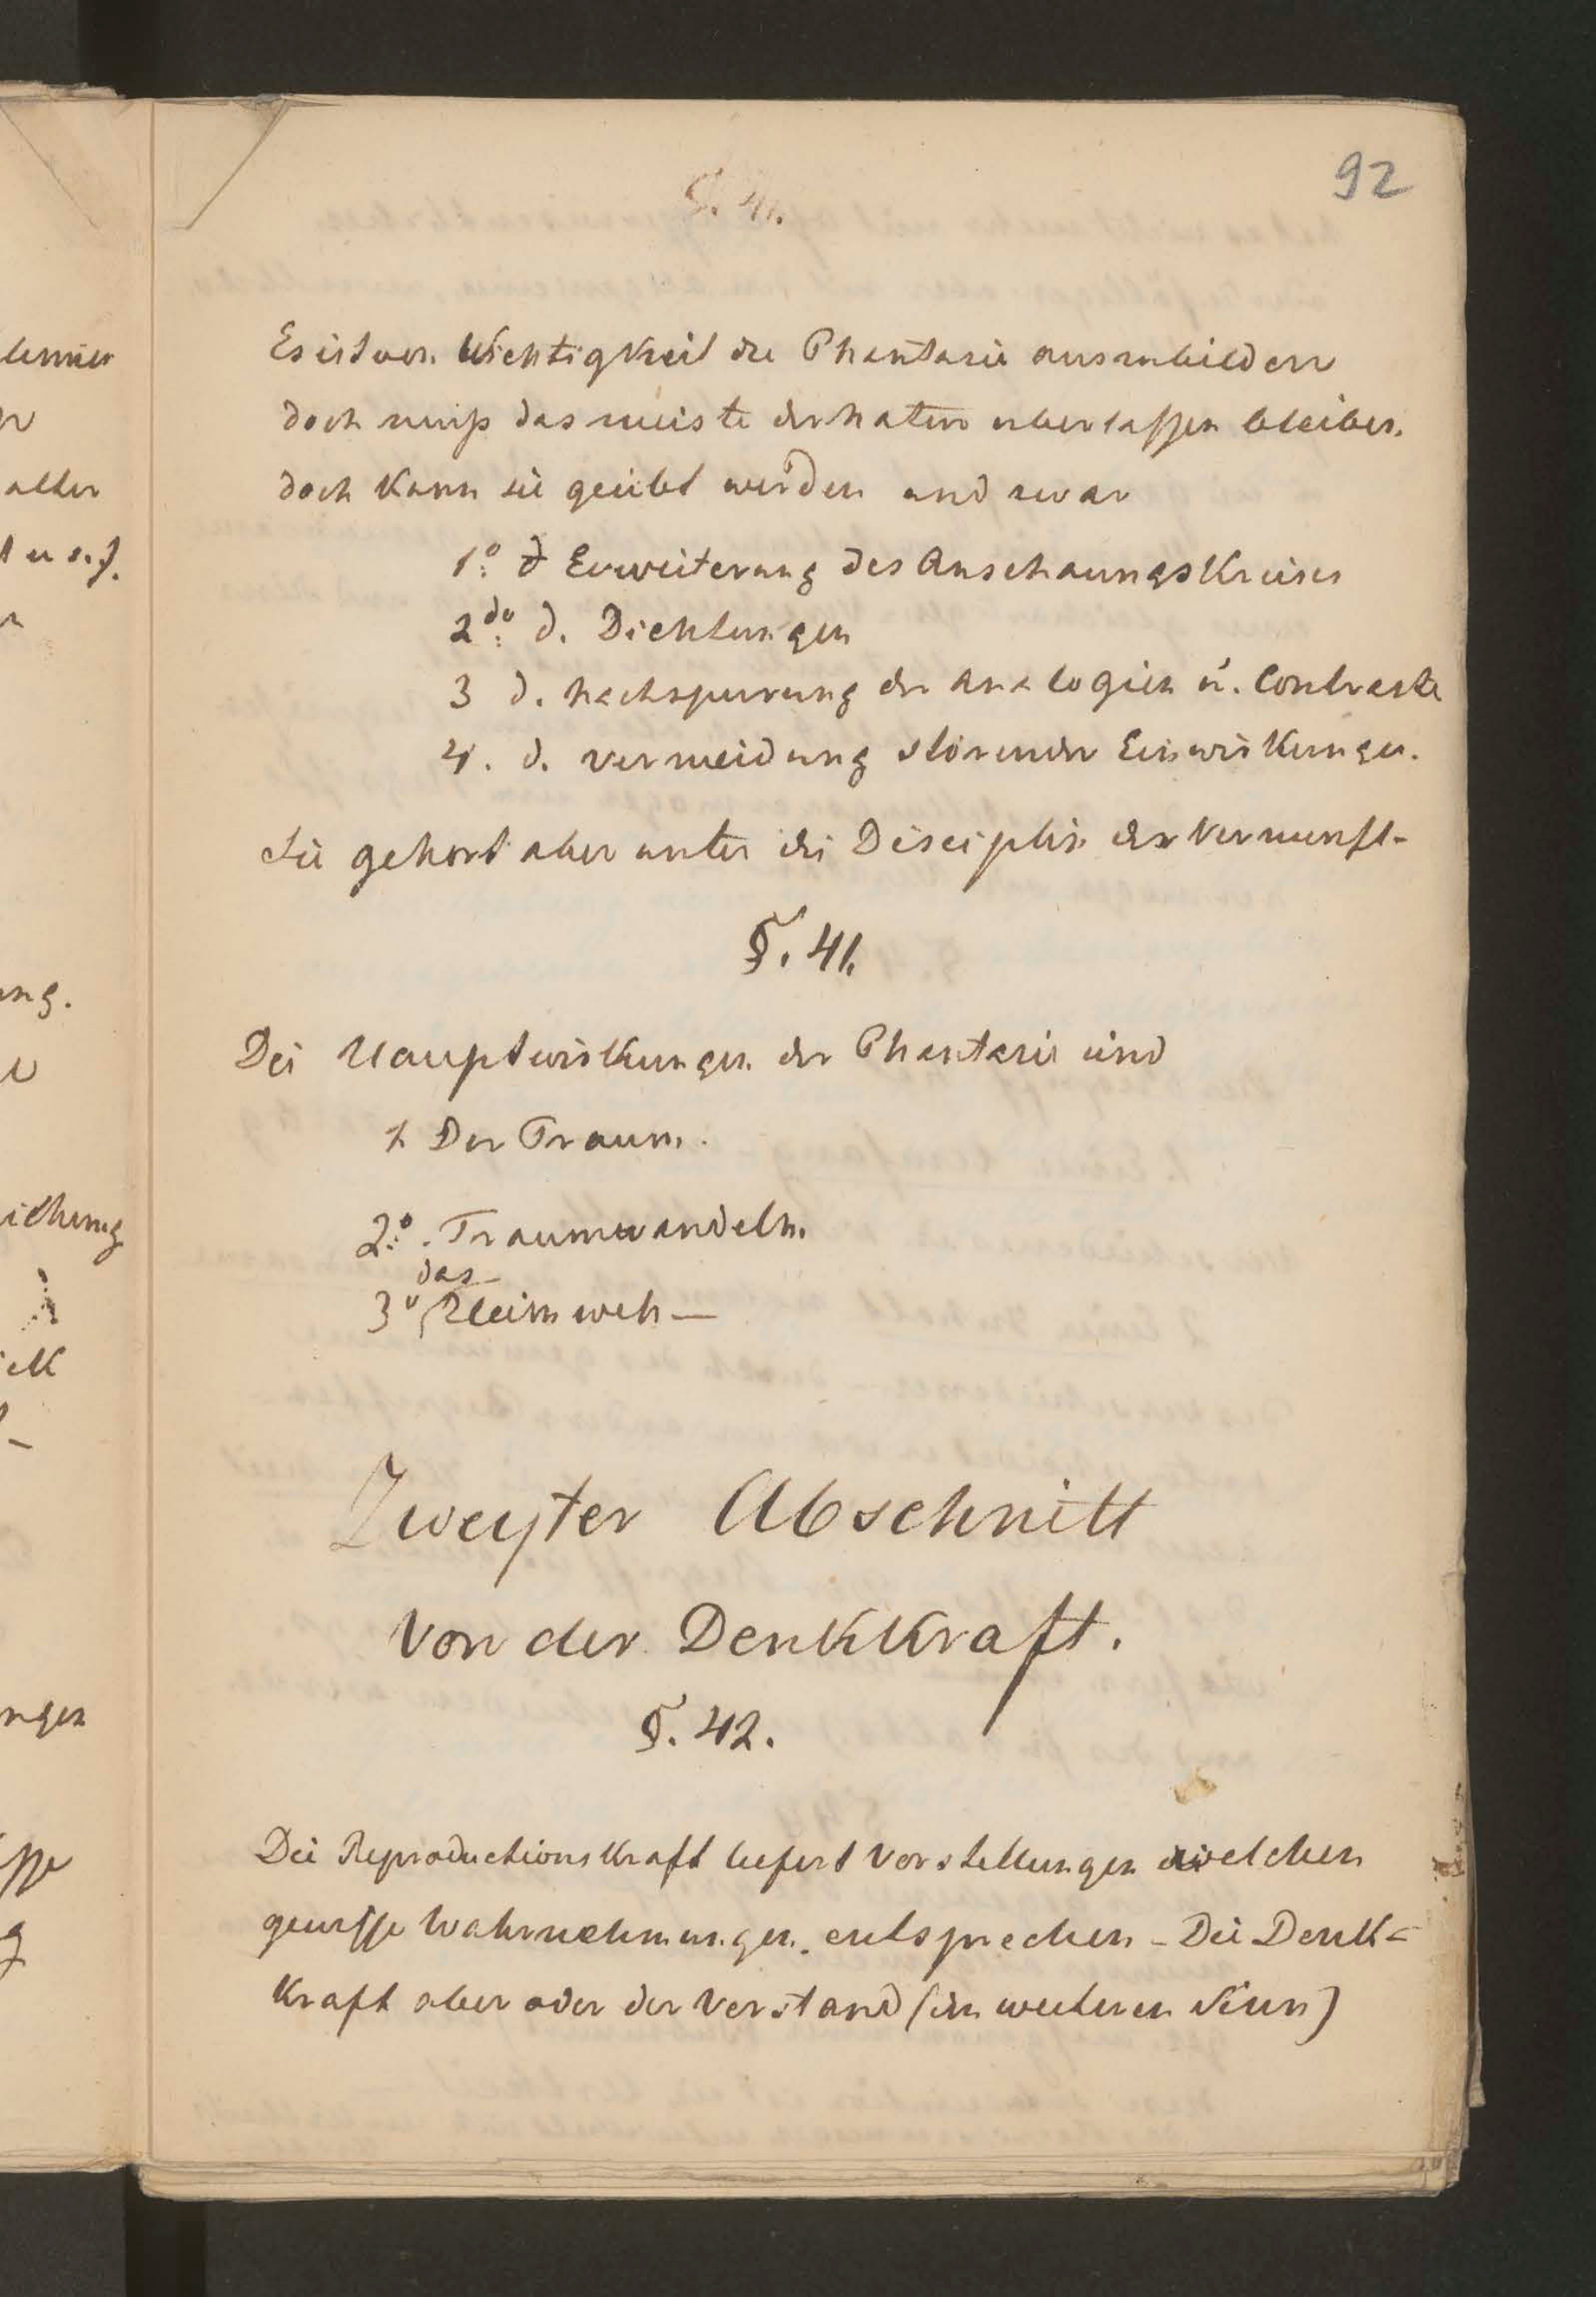 92
§. 41.
Es ist von Wichtigkeit die Phantasie auszubilden
doch muß das meiste der Natur uberlassen bleiben.
doch kann sie geübt werden und zwar
1º. d Erweiterung des Anschaungskreises
2do. d. Dichtungen
3 d. Nachspurung der Analogien u. Contraste
4. d. Vermeidung störender Einwirkungen.
Sie gehort aber unter die Disciplin der Vernunft-
§. 41.
Die Hauptwirkungen der Phantasie sind
1. Der Traum.
2º. Traumwandeln.
das
3º Heimweh —
Zweyter Abschnitt
Von der Denkkraft.
§. 42.
Die Reproductionskraft liefert Vorstellungen welchen
gewisse Wahrnehmungen entsprechen - Die Denk=
kraft aber oder der Verstand (im weiteren Sinn)